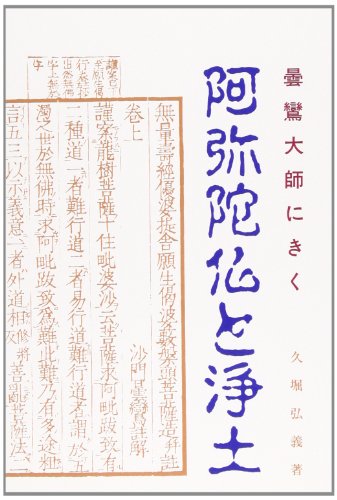 曇鸞大師にきく
阿弥陀仏と浄土
久堀弘義著
無量壽經優婆提舍願生偈婆藪槃頭菩薩造并註
卷上
沙門曇鸞註解
謹案龍樹菩薩十住毗婆沙云菩薩求阿毗跋致有
二種道一者難行道二者易行道難行道者謂於五
濁之世於無佛時求阿毗跋致為難此難乃有多途粗
言五三以示義意一者外道相善亂菩薩法二